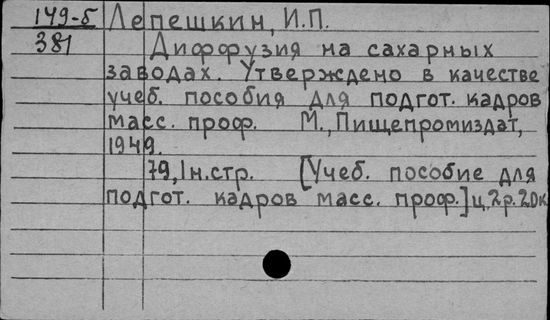 149-5 Лепешкин, И.П.
381 Диффузия на сахарных
заводах. Утверждено в качестве
учеб. пособия для подгот. кадров
масс. проф. М., Пищепромиздат,
1949.
79,1н.стр. [Учеб. пособие для
подгот. кадров масс. проф.] ц.2р.20к